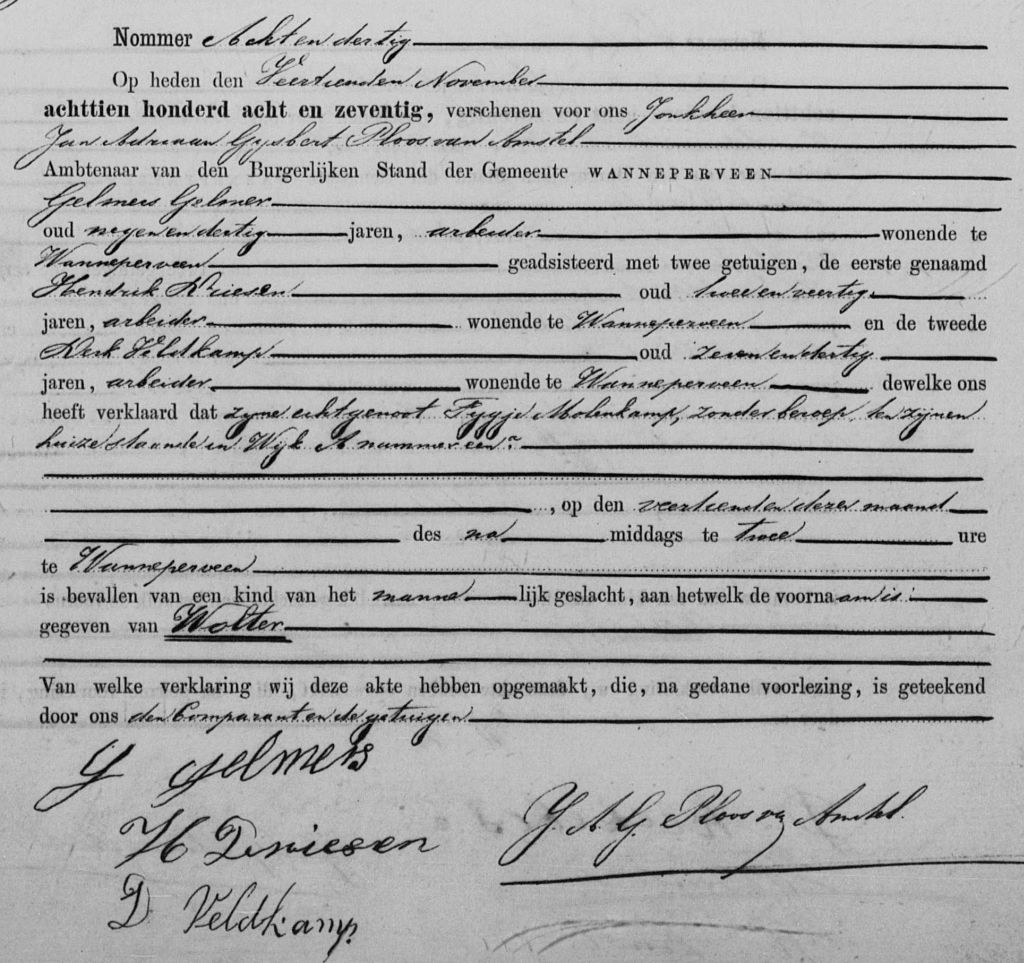 Nommer Acht en dertig
Op heden den Veertienden November
achttien honderd acht en zeventig, verschenen voor ons Jonkheer
Jan Adriaan Gysbert Ploos van Amstel
Ambtenaar van den Burgerlijken Stand der Gemeente WANNEPERVEEN
Gelmers Gelmer
oud negen en dertig jaren, arbeider wonende te
Wanneperveen geadsisteerd met twee getuigen, de eerste genaamd
Hendrik Driesen oud twee en veertig
jaren, arbeider wonende te Wanneperveen en de tweede
Derk Veldkamp oud zeven en dertig
jaren, arbeider wonende te Wanneperveen dewelke ons
heeft verklaard dat zyne echtgenoot Fygje Molenkamp, zonder beroep, ten zijnen
huize staande in Wyk A nummer een
, op den veertienden dezer maand
des na middags te twee ure
te Wanneperveen
is bevallen van een kind van het manne lijk geslacht, aan hetwelk de voorna am is
gegeven van Wolter
Van welke verklaring wij deze akte hebben opgemaakt, die, na gedane voorlezing, is geteekend
door ons den Comparant en de getuigen
G Gelmers
J. A. G. Ploos van Amstel.
H Driesen
D Veldkamp